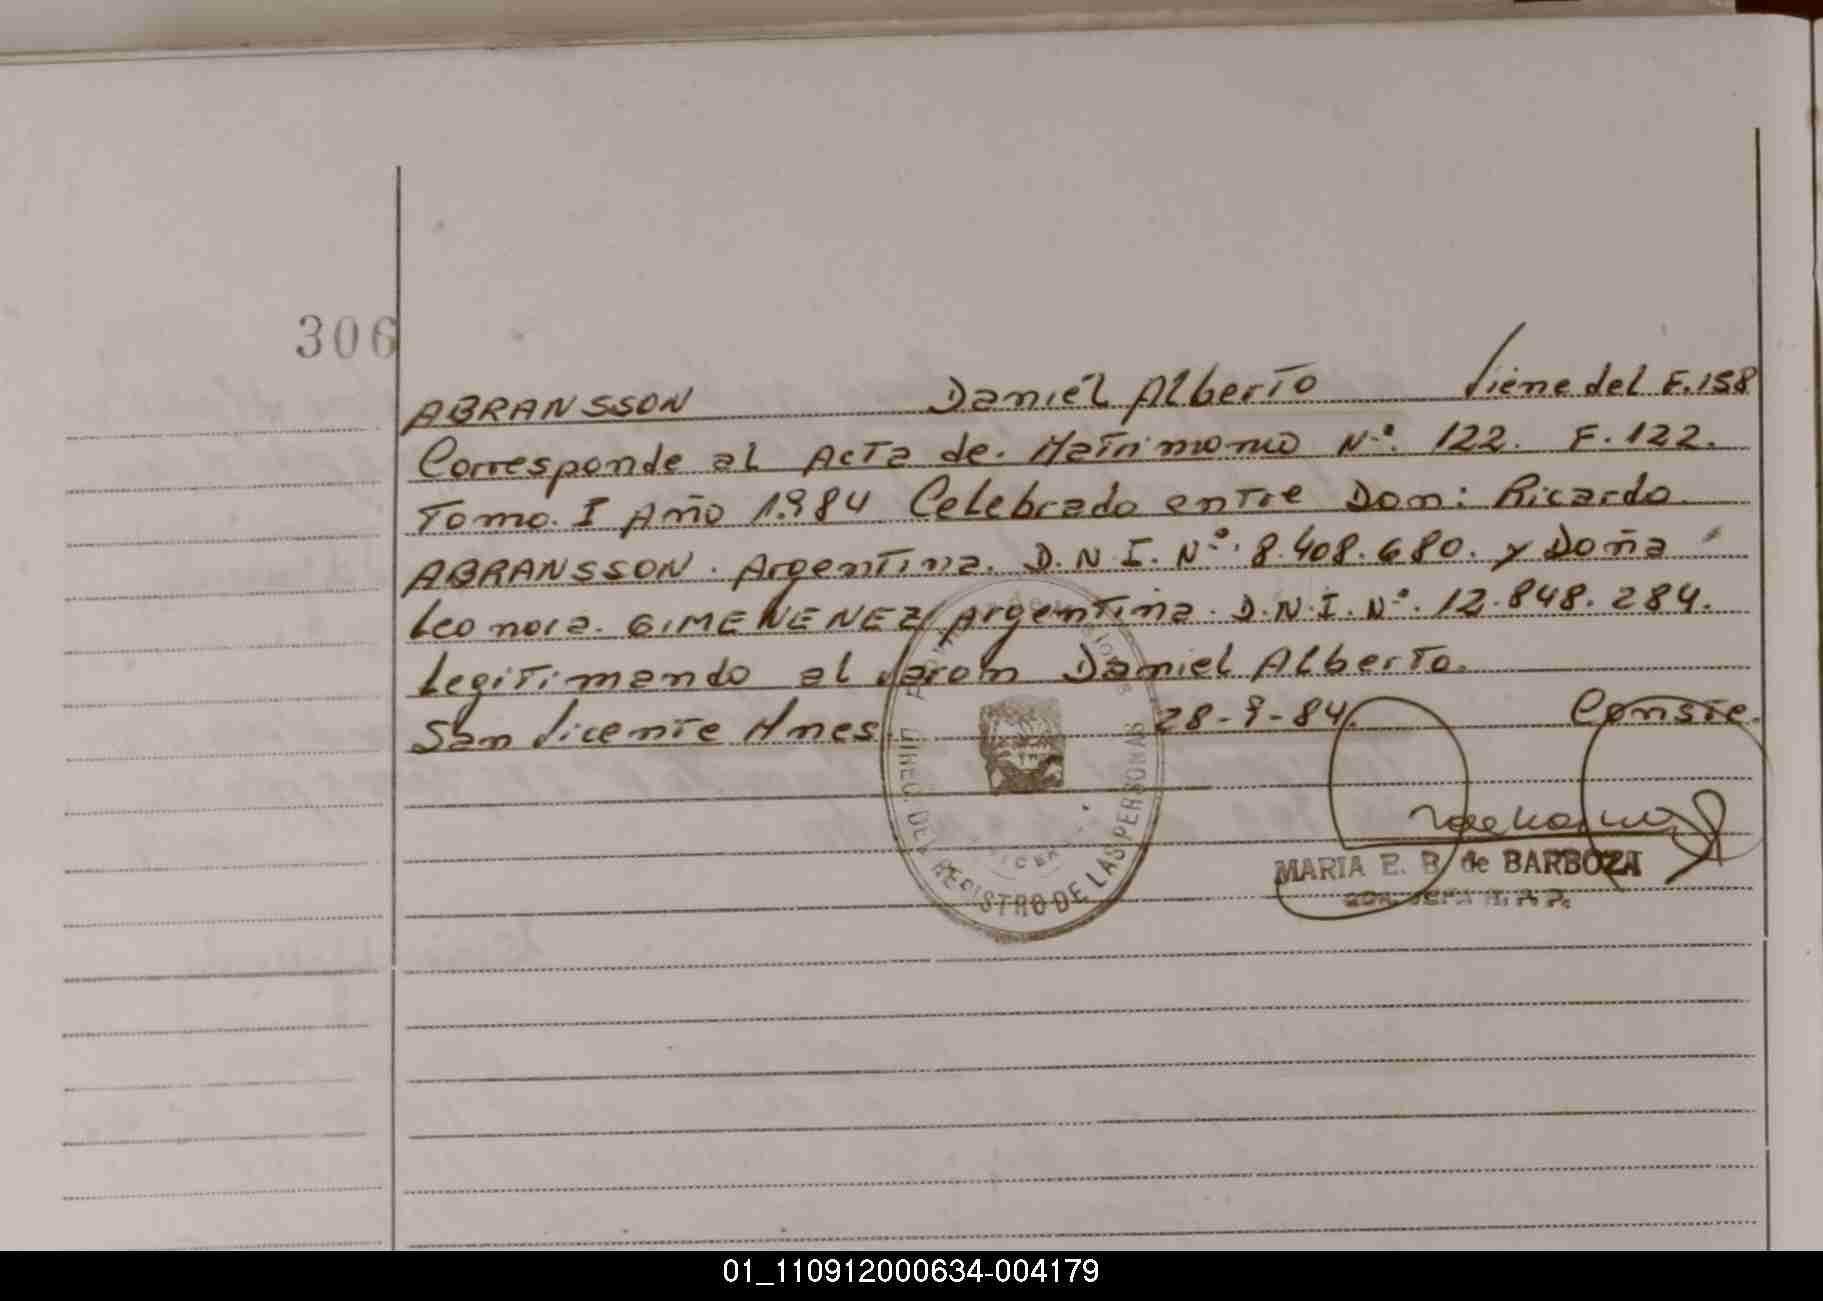 306
ABRANSSON Daniel Alberto Viene del F. 158
Corresponde al Acta de. Matrimonio Nº. 122. F. 122.
Tomo. I Año 1.984 Celebrado entre Don: Ricardo
ABRANSSON. Argentina. D.N.I. Nº. 8.408.680. y Doña
Leonora. GIMENENEZ Argentina. D.N.I. Nº. 12.848.284.
Legitimando al varon Daniel Alberto.
San Vicente Mnes. 28-9-84. Conste.
DIREC. DEL REGISTRO DE LAS PERSONAS
MARIA E. B. de BARBOZA
01_110912000634-004179